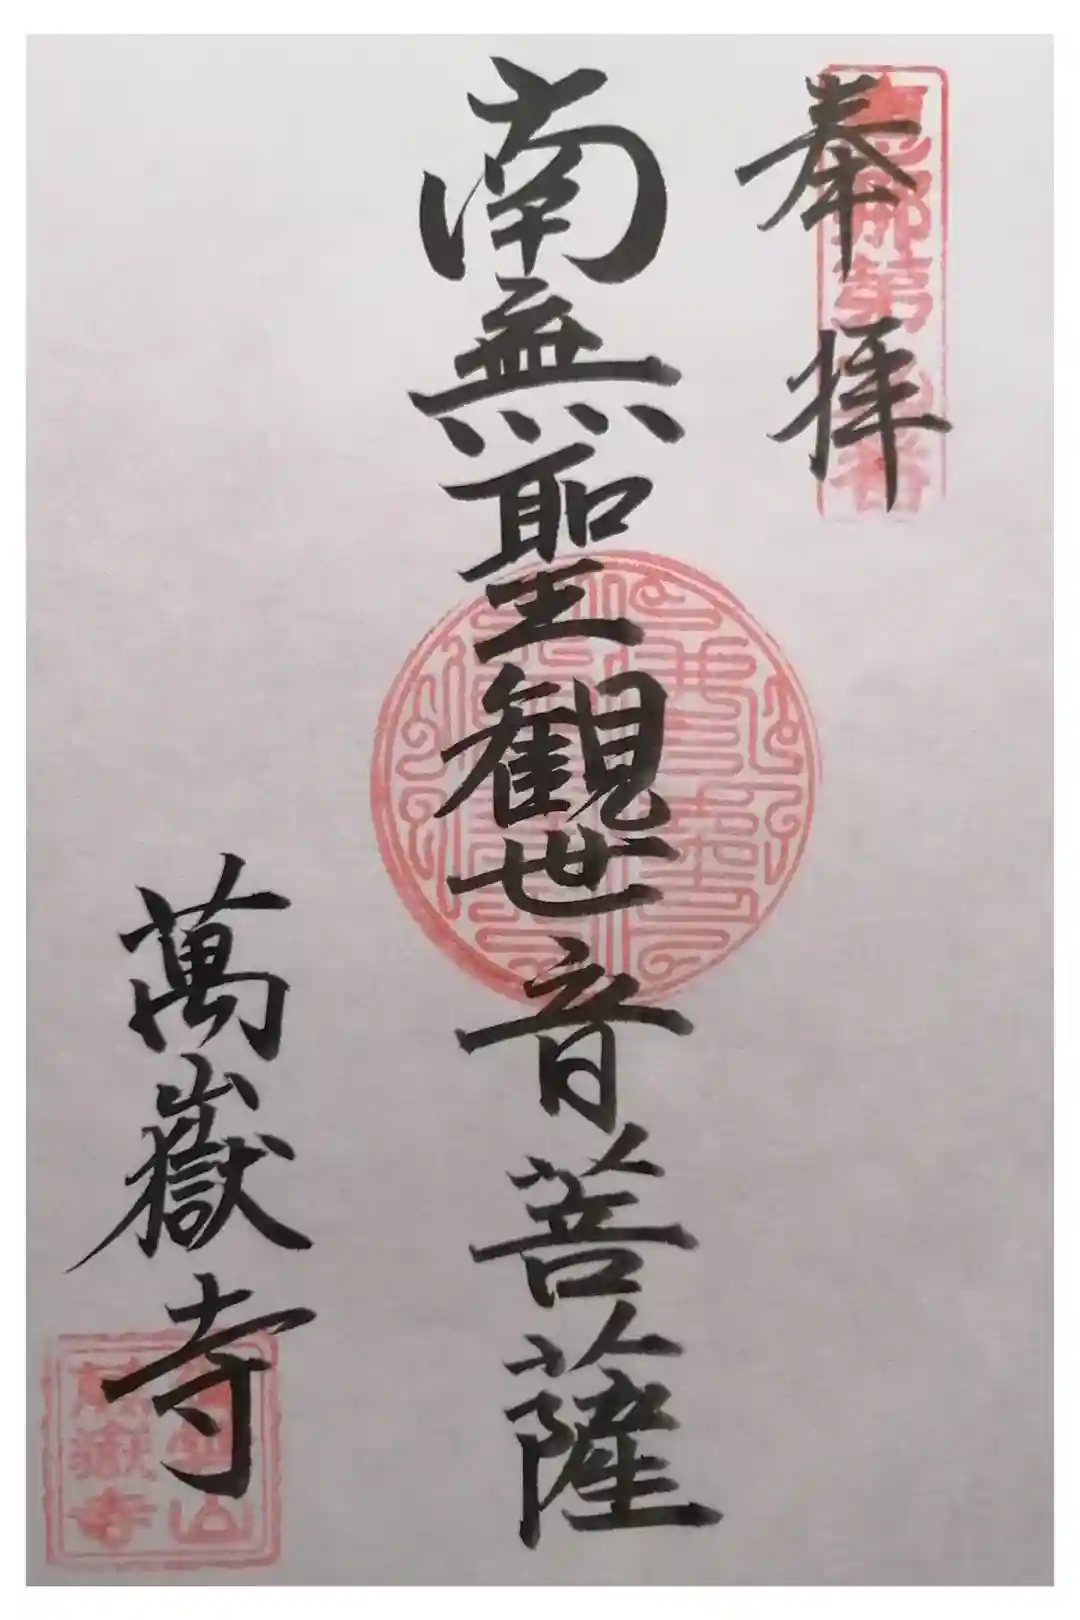 奉拝
南無聖観世音菩薩
萬嶽寺
萬嶽寺